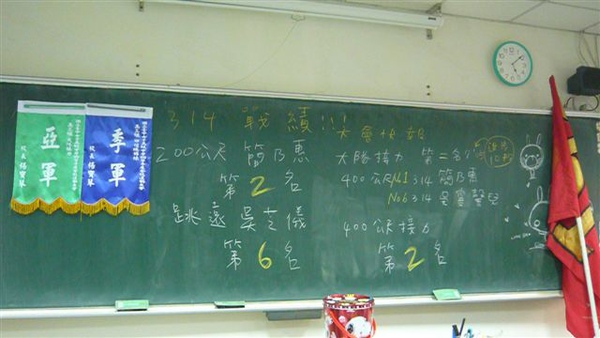 亞軍
校長 楊寶琴
季軍
校長 楊寶琴
314 戰績!!!
大會快報
200公尺 簡乃惠
第2名
跳遠 吳文儀
第6名
大隊接力 第二名
400公尺 No1 314 簡乃惠
No6 314
400公尺接力
第2名